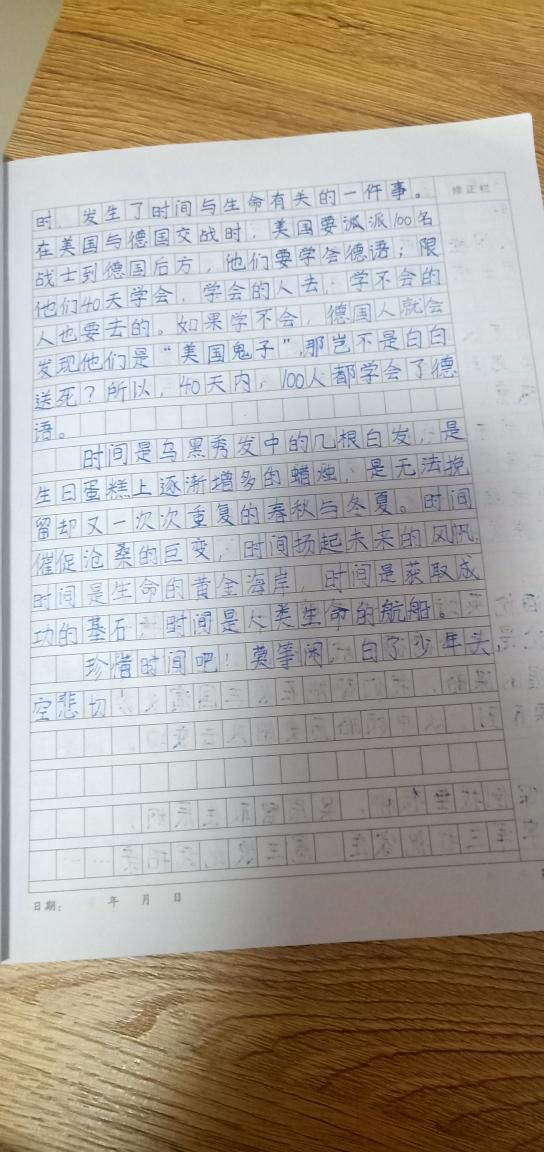 修正栏
时，发生了时间与生命有关的一件事。
在美国与德国交战时，美国要派100名
战士到德国后方，他们要学会德语；限
他们40天学会，学会的人去，学不会的
人也要去的。如果学不会，德国人就会
发现他们是“美国鬼子”，那岂不是白白
送死？所以，40天内，100人都学会了德
语。
时间是乌黑秀发中的几根白发，是
生日蛋糕上逐渐增多的蜡烛，是无法挽
留却又一次次重复的春秋与冬夏。时间
催促沧桑的巨变，时间扬起未来的风帆，
时间是生命的黄金海岸，时间是获取成
功的基石，时间是人类生命的航船。
珍惜时间吧！莫等闲，白了少年头，
空悲切
日期： 年 月 日